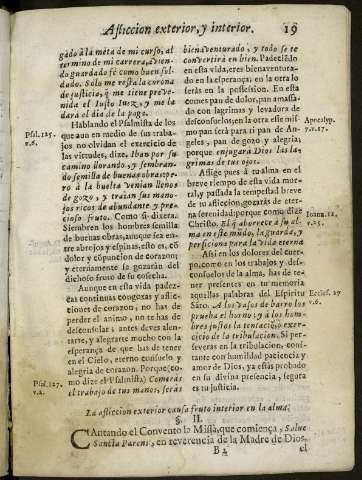 Afliccion exterior, y interior. 19
gado à la meta de mi curso, al
termino de mi carrera, avien-
do guardado fé como buen sol-
dado. Solo me resta la corona
de justicia, q̃ me tiene preve-
nida el Iusto Iuez, y me la
darà el dia de la paga.
Hablando el Psalmista de los
que aun en medio de sus traba-
jos no olvidan el exercicio de
las virtudes, dize. Iban por su
camino llorando, y sembran-
do semilla de buenas obras: pe-
ro à la buelta venian llenos
de gozo, y traìan sus mano-
jos ricos de abundante y pre-
cioso fruto. Como si dixera:
Siembren los hombres semilla
de buenas obras, aunque sea en-
tre abrojos y espinas, esto es, cõ
dolor y cõpuncion de corazon;
y eternamente se gozaràn del
dichoso fruto de su cosecha.
Aunque en esta vida padez-
cas continuas congojas y aflic-
ciones de corazon; no has de
perder el animo, ni te has de
desconsolar; antes deves alen-
tarte, y alegrarte mucho con la
esperança de que has de tener
en el Cielo, eterno consuelo y
alegria de corazon. Porque (co-
mo dize el Psalmista) Comeràs
el trabajo de tus manos, seràs
Psal. 125.
v.6.
Psal. 127.
v.2.
bienaventurado, y todo se te
convertirà en bien. Padeciẽdo
en esta vida, eres bienaventura-
do en la esperança; en la otra lo
seràs en la possession. En esta
comes pan de dolor, pan amassa-
do con lagrimas y levadura de
desconsuelos; en la otra este mis-
mo pan serà para ti pan de An-
geles, pan de gozo y alegria;
porque enjugarà Dios las la-
grimas de tus ojos.
Aflige pues à tu alma en el
breve tiempo de esta vida mor-
tal, y passada la tempestad breve
de tu afliccion, gozaràs de eter-
na serenidad: porque como dize
Christo. El q̃ aborrece à su al-
ma en este mundo, la guarda, y
perficiona para la vida eterna
Assi en los dolores del cuer-
po, como en los trabajos y des-
consuelos de la alma, has de te-
ner presentes en tu memoria
aquellas palabras del Espiritu
Sãto. A los vasos de barro los
prueba el horno; y à los hom-
bres justos la tentaciõ, y exer-
cicio de la tribulacion. Si per-
severas en la tribulacion, cons-
tante con humildad paciencia y
amor de Dios, ya estàs probado
en su divina presencia, segura
es tu justicia.
Apocalyp.
7. v.17.
Ioann. 12.
v.25.
Eccles. 27
v.6.
La afliccion exterior causa fruto interior en la alma.
§. II.
CAntando el Convento la Missa, que comiença, Salve
Sancta Parens, en reverencia de la Madre de Dios,
B 2 el